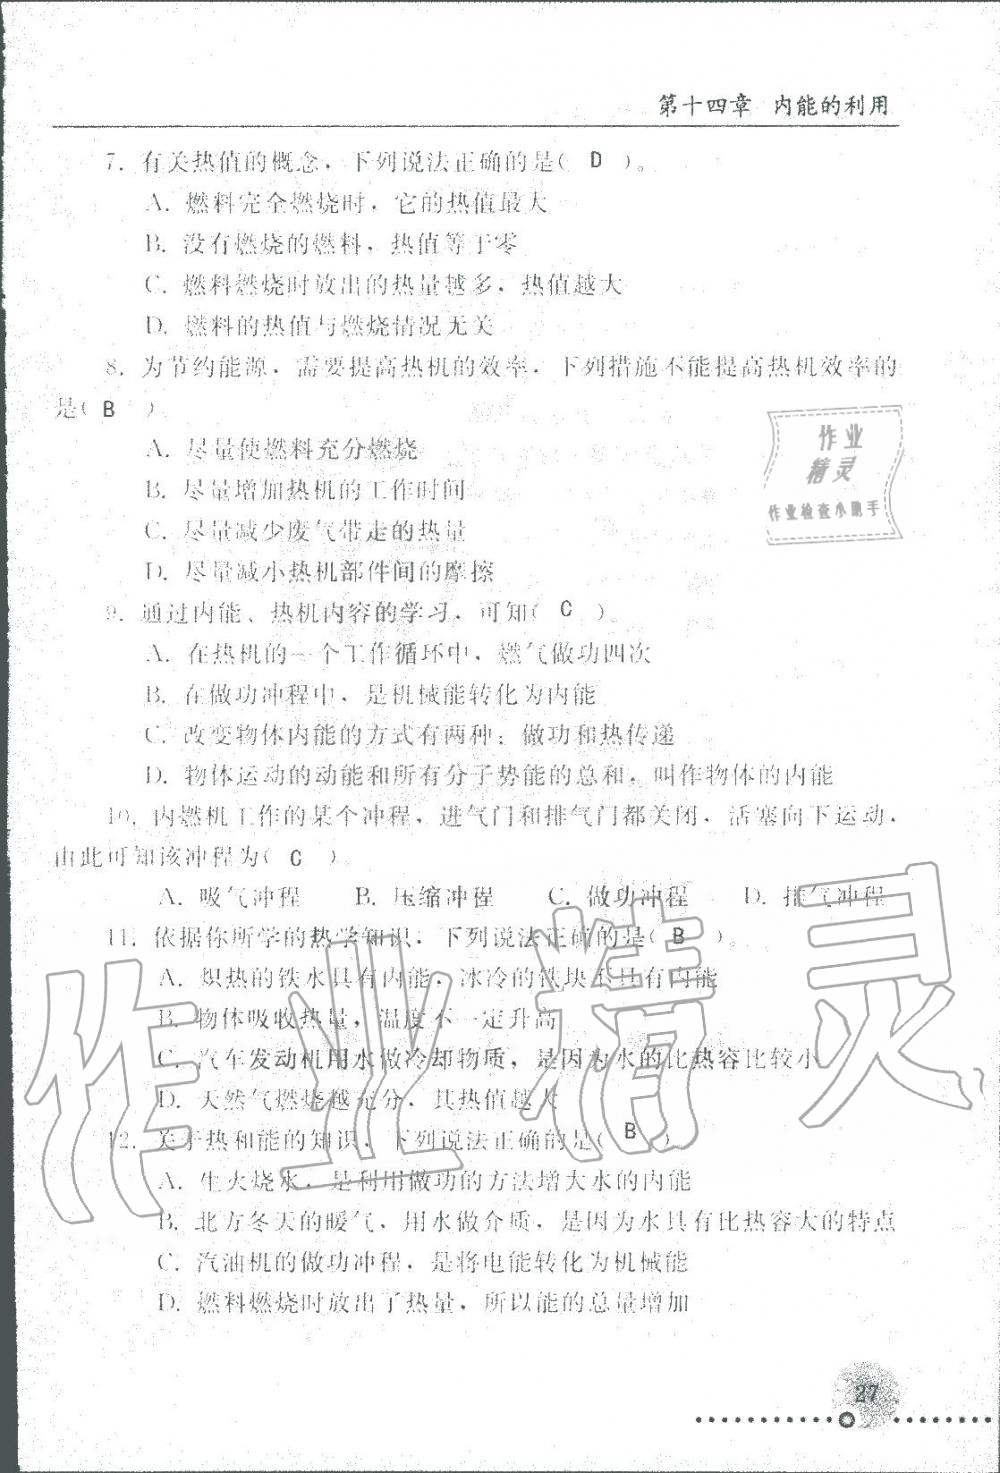 第十四章 内能的利用
7. 有关热值的概念，下列说法正确的是( D )。
A. 燃料完全燃烧时，它的热值最大
B. 没有燃烧的燃料，热值等于零
C. 燃料燃烧时放出的热量越多，热值越大
D. 燃料的热值与燃烧情况无关
8. 为节约能源，需要提高热机的效率，下列措施不能提高热机效率的
是( B )。
A. 尽量使燃料充分燃烧
B. 尽量增加热机的工作时间
C. 尽量减少废气带走的热量
D. 尽量减小热机部件间的摩擦
作业
精灵
作业检查小助手
9. 通过内能、热机内容的学习，可知( C )。
A. 在热机的一个工作循环中，燃气做功四次
B. 在做功冲程中，是机械能转化为内能
C. 改变物体内能的方式有两种：做功和热传递
D. 物体运动的动能和所有分子势能的总和，叫作物体的内能
10. 内燃机工作的某个冲程，进气门和排气门都关闭，活塞向下运动，
由此可知该冲程为( C )。
A. 吸气冲程 B. 压缩冲程 C. 做功冲程 D. 排气冲程
11. 依据你所学的热学知识，下列说法正确的是( B )。
A. 炽热的铁水具有内能，冰冷的铁块不具有内能
B. 物体吸收热量，温度不一定升高
C. 汽车发动机用水做冷却物质，是因为水的比热容比较小
D. 天然气燃烧越充分，其热值越大
12. 关于热和能的知识，下列说法正确的是( B )
A. 生火烧水，是利用做功的方法增大水的内能
B. 北方冬天的暖气，用水做介质，是因为水具有比热容大的特点
C. 汽油机的做功冲程，是将电能转化为机械能
D. 燃料燃烧时放出了热量，所以能的总量增加
作业精灵
27